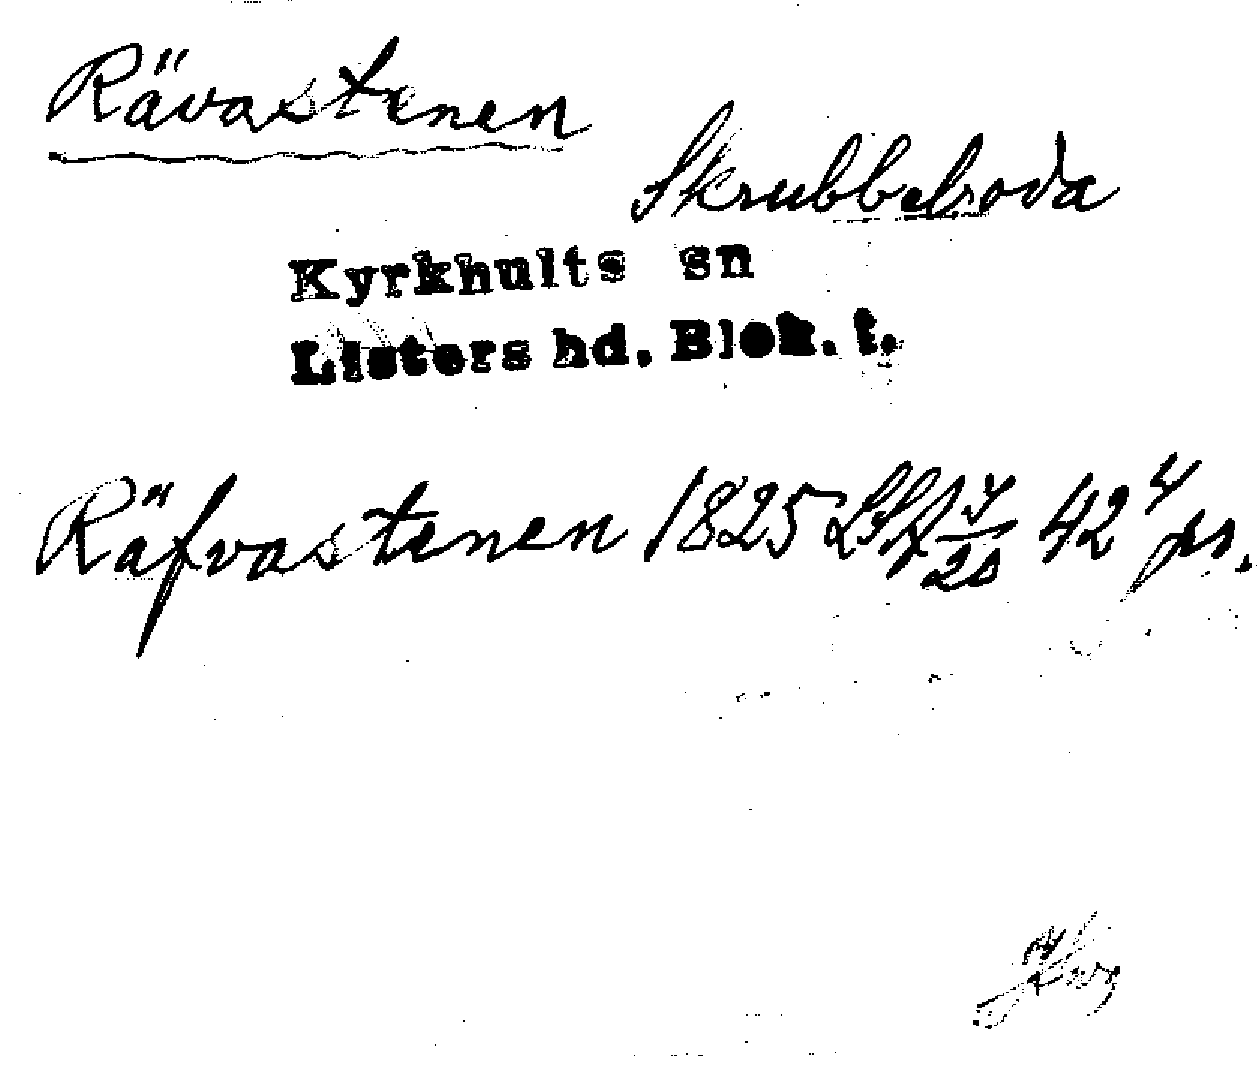 Rävastenen
Skrubbeboda
Kyrkhults sn
Listers hd. Blek. t.
Räfvastenen 1825 LSA 42⁴